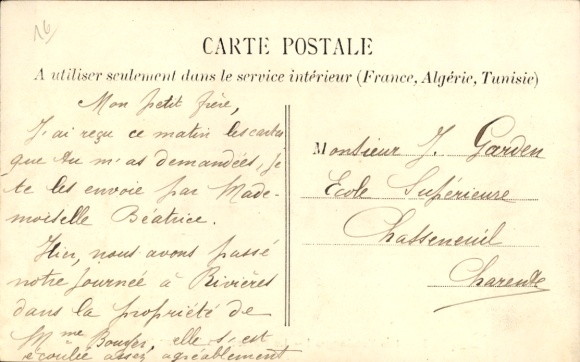 16
CARTE POSTALE
A utiliser seulement dans le service intérieur (France, Algérie, Tunisie)
Mon petit frère,
J'ai reçu ce matin les cartes
que tu m'as demandées, je
te les envoie par Made-
moiselle Béatrice.
Hier, nous avons passé
notre journée à Rivières
dans la propriété de
Mme elle s'est
écoulée assez agréablement
Monsieur J. Garden
Ecole Supérieure
Chasseneuil
Charente